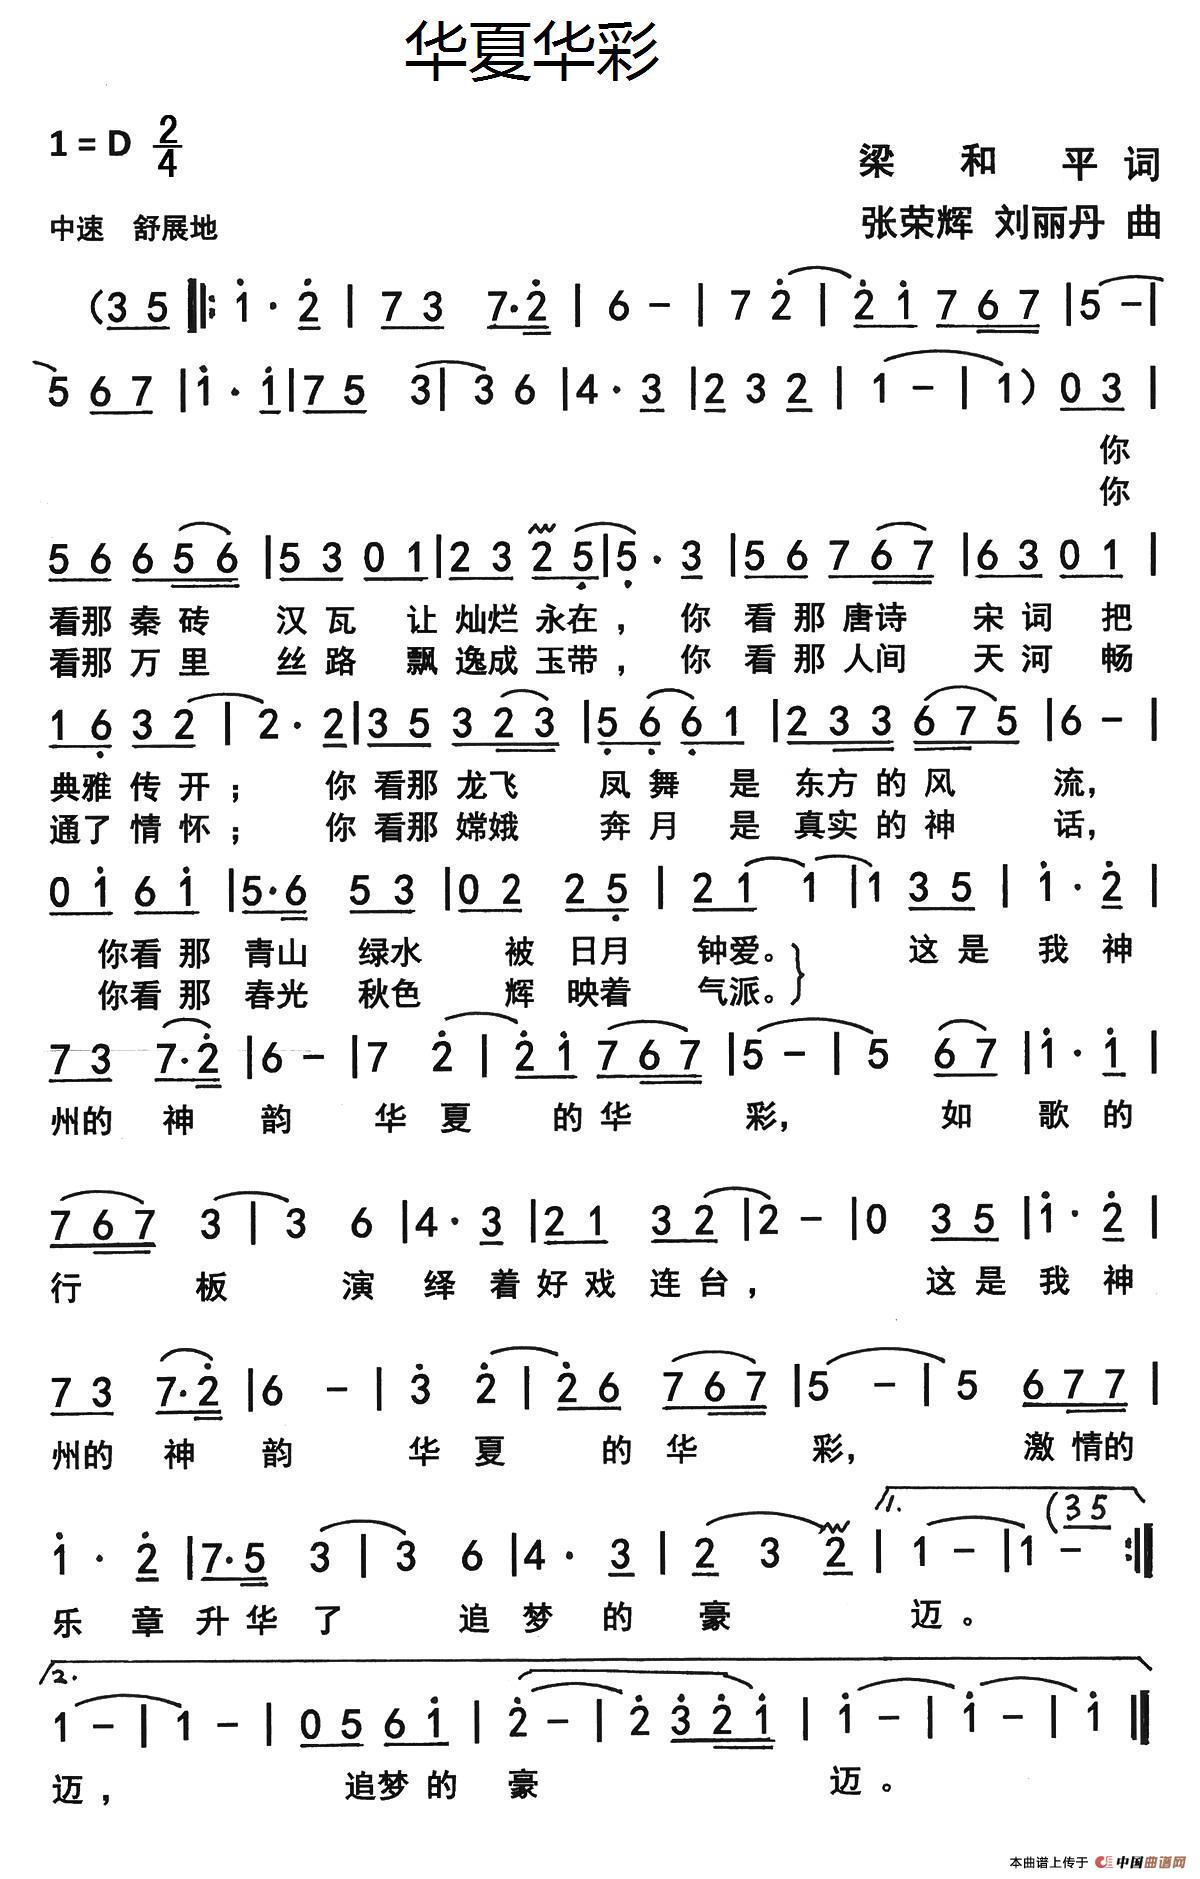 华夏华彩
1 = D 2/4
梁 和 平 词
中速 舒展地
张荣辉 刘丽丹 曲
(3 5 ‖: 1̇ · 2̇ | 7 3 7·2̇ | 6 – | 7 2̇ | 2̇ 1̇ 7 6 7 | 5 – |
5 6 7 | 1̇ · 1̇ | 7 5 3 | 3 6 | 4 · 3 | 2 3 2 | 1 – | 1) 0 3 |
你
你
5 6 6 5 6 | 5 3 0 1 | 2 3 2 5̣ | 5̣ · 3 | 5 6 7 6 7 | 6 3 0 1 |
看那 秦 砖 汉 瓦 让 灿烂 永在， 你 看 那 唐诗 宋 词 把
看那 万 里 丝 路 飘 逸成 玉带， 你 看 那 人间 天 河 畅
1 6̣ 3 2 | 2 · 2 | 3 5 3 2 3 | 5̣ 6̣ 6̣ 1 | 2 3 3 6 7 5 | 6 – |
典雅 传 开； 你 看那 龙飞 凤 舞 是 东方 的 风 流，
通了 情 怀； 你 看那 嫦娥 奔 月 是 真实 的 神 话，
0 1̇ 6 1̇ | 5·6 5 3 | 0 2 2 5̣ | 2 1 1 | 1 3 5 | 1̇ · 2̇ |
你看 那 青山 绿水 被 日月 钟爱。 这 是 我 神
你看 那 春光 秋色 辉 映着 气派。
7 3 7·2̇ | 6 – | 7 2̇ | 2̇ 1̇ 7 6 7 | 5 – | 5 6 7 | 1̇ · 1̇ |
州的 神 韵 华 夏 的 华 彩， 如 歌 的
7 6 7 3 | 3 6 | 4 · 3 | 2 1 3 2 | 2 – | 0 3 5 | 1̇ · 2̇ |
行 板 演 绎 着 好 戏 连 台， 这 是 我 神
7 3 7·2̇ | 6 – | 3̇ 2̇ | 2̇ 6 7 6 7 | 5 – | 5 6 7 7 |
州的 神 韵 华 夏 的 华 彩， 激 情的
1. (3 5
1̇ · 2̇ | 7·5 3 | 3 6 | 4 · 3 | 2 3 2 | 1 – | 1 – :‖
乐 章 升 华 了 追 梦 的 豪 迈。
2.
1 – | 1 – | 0 5 6 1̇ | 2̇ – | 2̇ 3̇ 2̇ 1̇ | 1̇ – | 1̇ – | 1̇ ‖
迈， 追梦 的 豪 迈。
本曲谱上传于 中国曲谱网